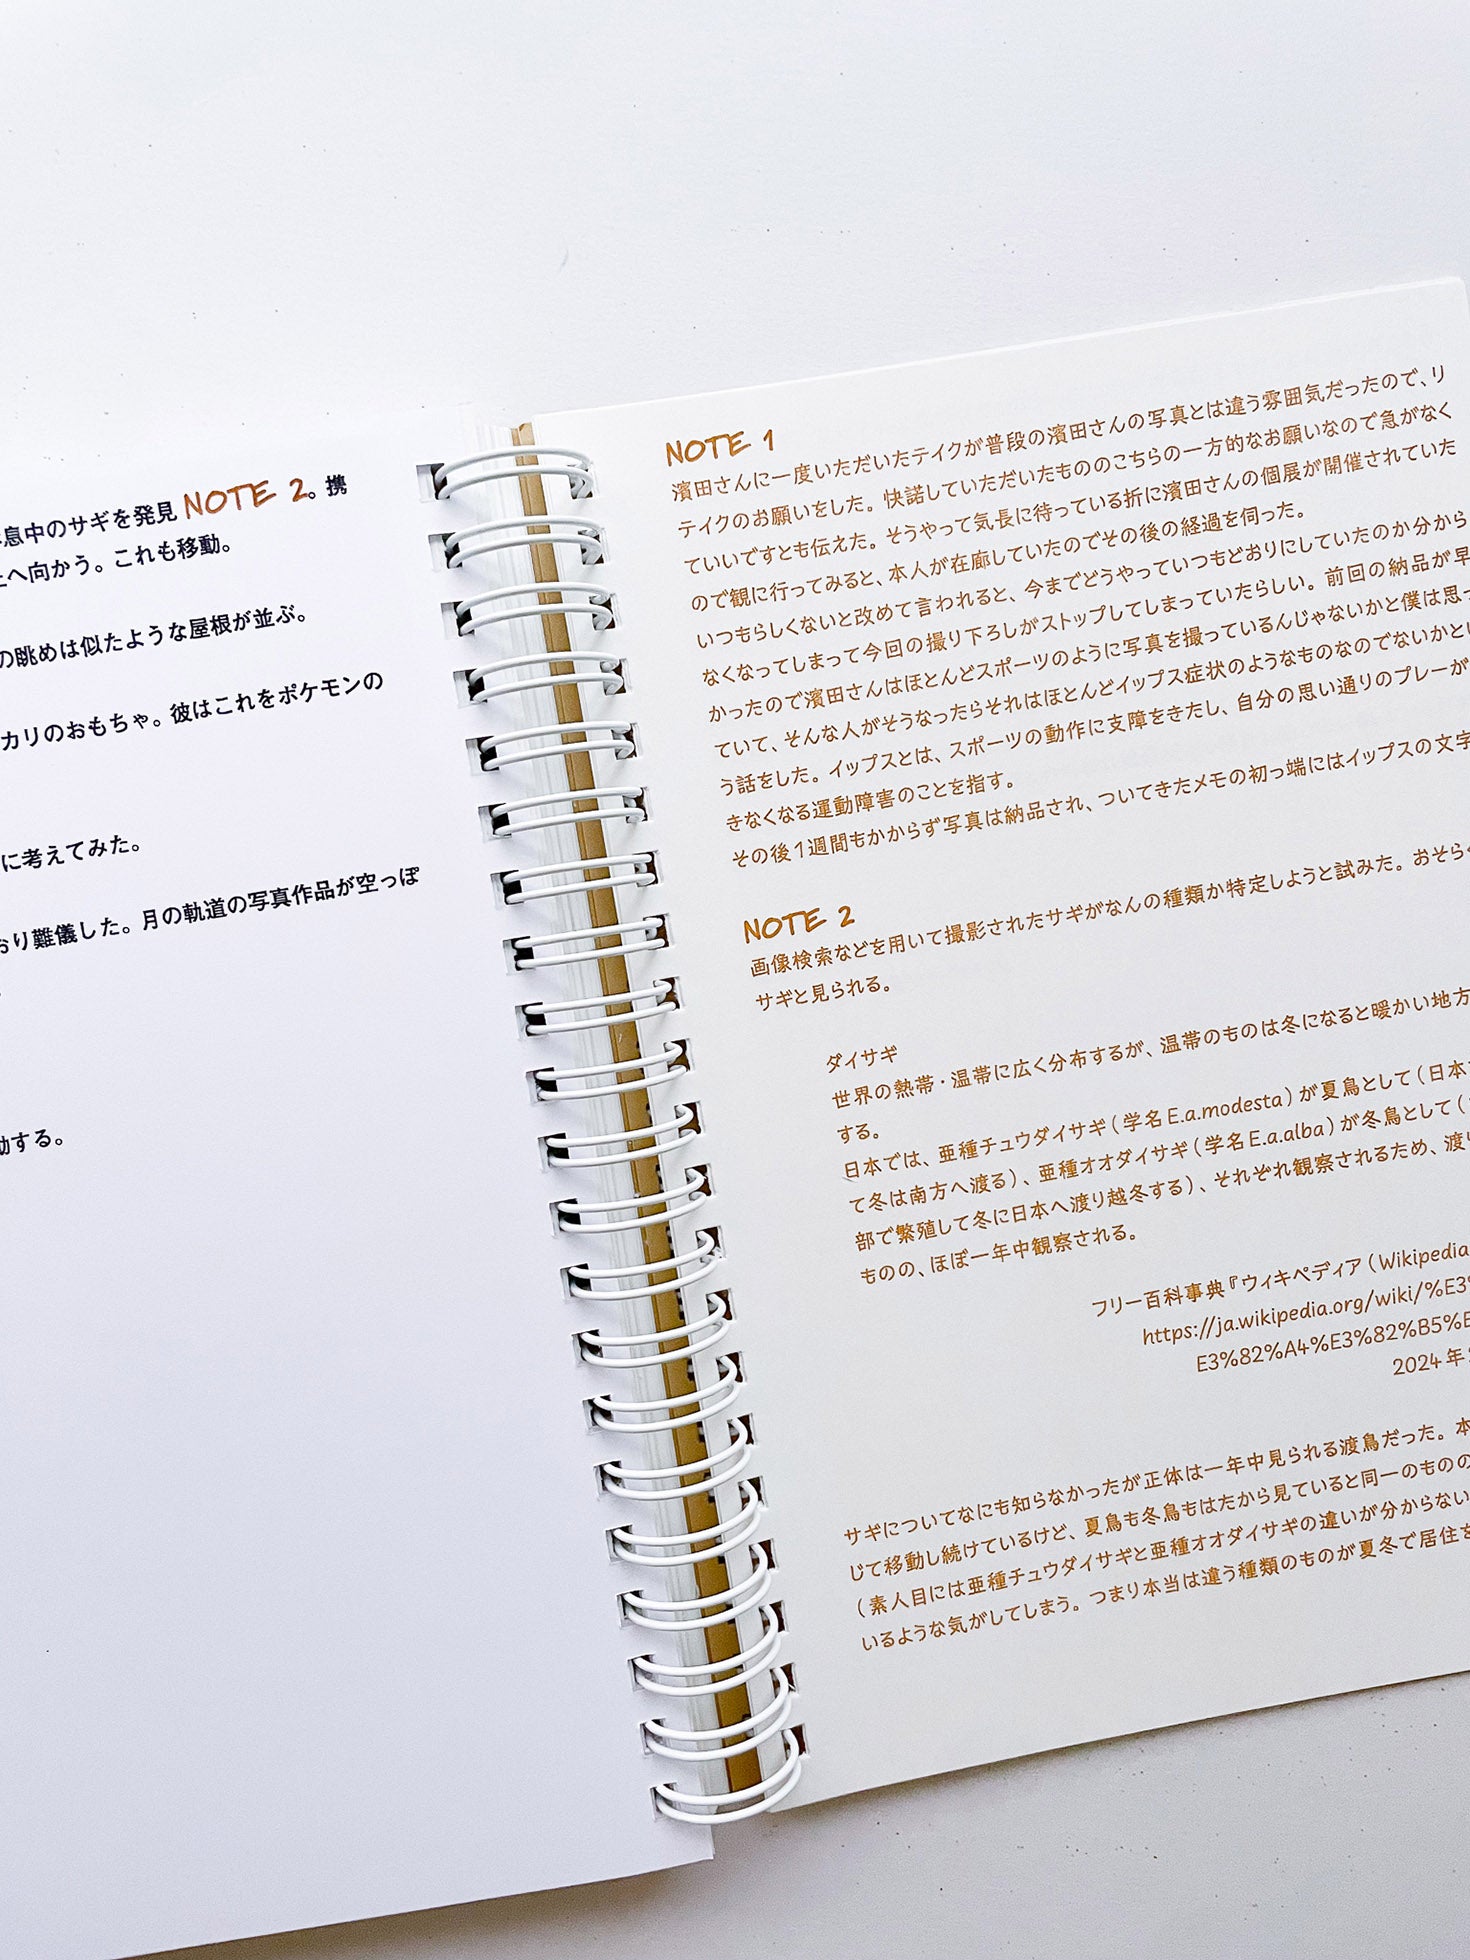 息中のサギを発見 NOTE 2。携
へ向かう。これも移動。
の眺めは似たような屋根が並ぶ。
カリのおもちゃ。彼はこれをポケモンの
に考えてみた。
おり難儀した。月の軌道の写真作品が空っぽ
。
動する。
NOTE 1
濱田さんに一度いただいたテイクが普段の濱田さんの写真とは違う雰囲気だったので、リ
テイクのお願いをした。快諾していただいたもののこちらの一方的なお願いなので急がなく
ていいですとも伝えた。そうやって気長に待っている折に濱田さんの個展が開催されていた
ので観に行ってみると、本人が在廊していたのでその後の経過を伺った。
いつもらしくないと改めて言われると、今までどうやっていつもどおりにしていたのか分から
なくなってしまって今回の撮り下ろしがストップしてしまっていたらしい。前回の納品が早
かったので濱田さんはほとんどスポーツのように写真を撮っているんじゃないかと僕は思っ
ていて、そんな人がそうなったらそれはほとんどイップス症状のようなものなのでないかとい
う話をした。イップスとは、スポーツの動作に支障をきたし、自分の思い通りのプレーが
きなくなる運動障害のことを指す。
その後1週間もかからず写真は納品され、ついてきたメモの初っ端にはイップスの文字
NOTE 2
画像検索などを用いて撮影されたサギがなんの種類か特定しようと試みた。おそらく
サギと見られる。
ダイサギ
世界の熱帯・温帯に広く分布するが、温帯のものは冬になると暖かい地方
する。
日本では、亜種チュウダイサギ(学名E.a.modesta)が夏鳥として(日本
て冬は南方へ渡る)、亜種オオダイサギ(学名E.a.alba)が冬鳥として(
部で繁殖して冬に日本へ渡り越冬する)、それぞれ観察されるため、渡り
ものの、ほぼ一年中観察される。
フリー百科事典『ウィキペディア(Wikipedia
https://ja.wikipedia.org/wiki/%E3%
E3%82%A4%E3%82%B5%E
2024年
サギについてなにも知らなかったが正体は一年中見られる渡鳥だった。本
じて移動し続けているけど、夏鳥も冬鳥もはたから見ていると同一のものの
(素人目には亜種チュウダイサギと亜種オオダイサギの違いが分からない
いるような気がしてしまう。つまり本当は違う種類のものが夏冬で居住を